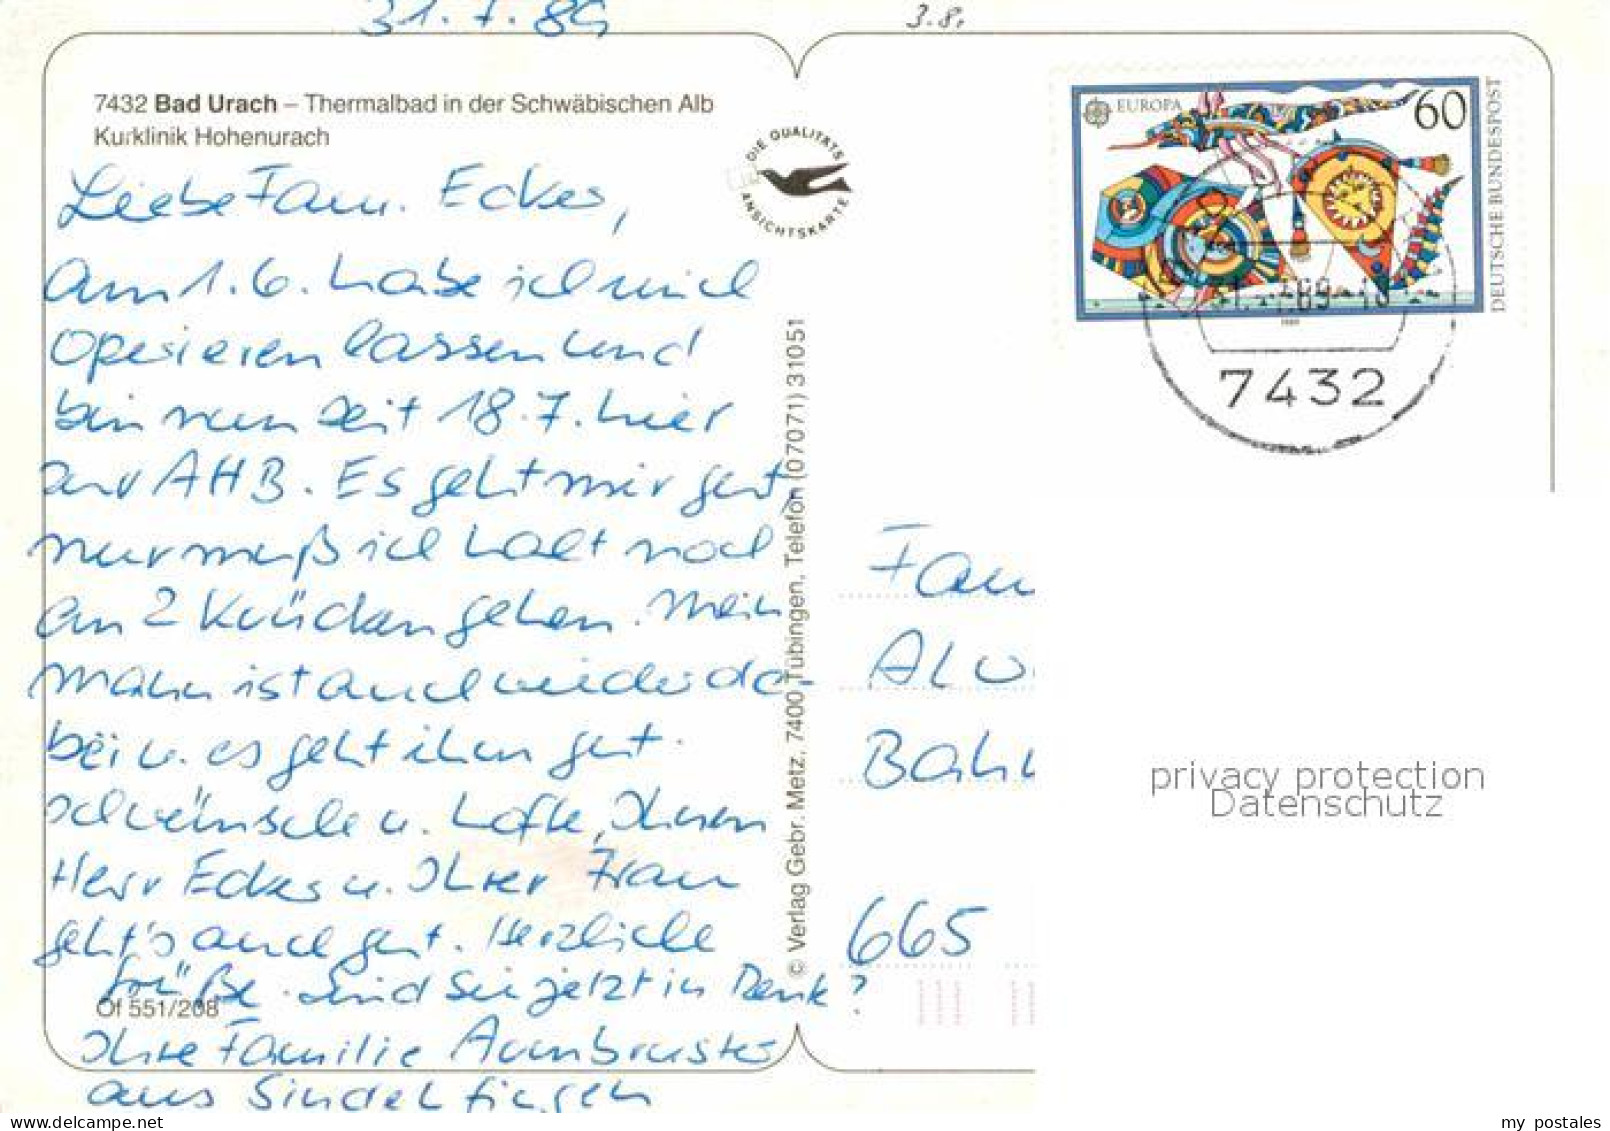 31.7.89
3.8.
7432 Bad Urach – Thermalbad in der Schwäbischen Alb
Kurklinik Hohenurach
DIE QUALITÄTS
ANSICHTSKARTE
EUROPA
60
DEUTSCHE BUNDESPOST
1989
7432
Liebe Fam. Eckes,
am 1.6. habe ich mich
operieren lassen und
bin nun seit 18.7. hier
zur AHB. Es geht mir gut,
nur muß ich halt noch
an 2 Krücken gehen. Mein
Mann ist auch wieder da-
bei u. es geht ihm gut.
Ich wünsche u. hoffe, Ihnen
Herr Eckes u. Ihrer Frau
geht's auch gut. Herzliche
Grüße. Sind Sie jetzt in Rente?
Ihre Familie Armbruster
aus Sindelfingen
Of 551/208
© Verlag Gebr. Metz, 7400 Tübingen, Telefon (07071) 31051
Fam
Alo
Bahn
665
privacy protection
Datenschutz
my postales